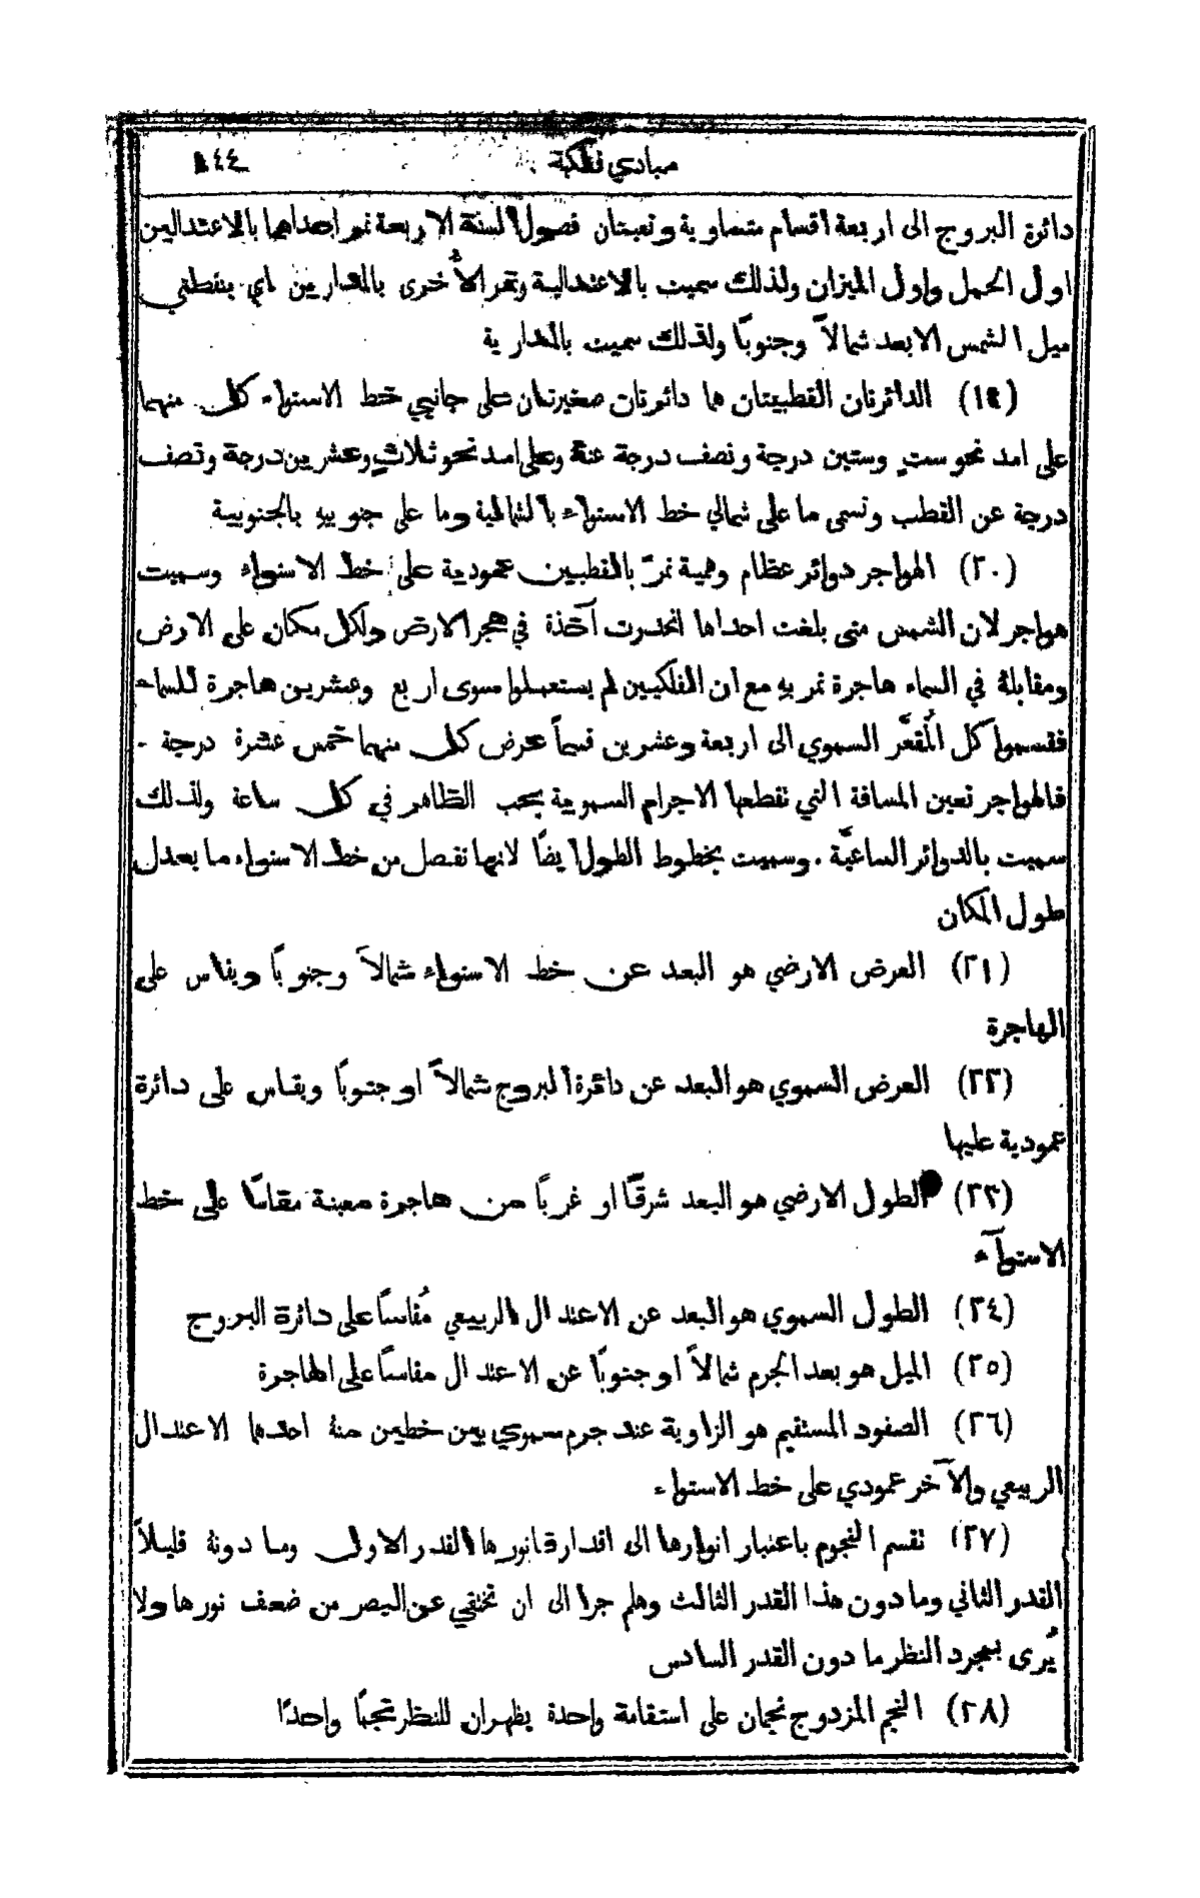 مبادي فلكية ١٤٤
دائرة البروج الى اربعة اقسام متساوية وتعينان فصول السنة الاربعة تمر احداهما بالاعتدالين
اول الحمل واول الميزان ولذلك سميت بالاعتدالية وتمر الأُخرى بالمدارين اي بنقطتي
ميل الشمس الابعد شمالاً وجنوبًا ولذلك سميت بالمدارية
(١٩) الدائرتان القطبيتان هما دائرتان صغيرتان على جانبي خط الاستواء كل منهما
على امد نحو ستٍ وستين درجة ونصف درجة عنهُ وعلى امد نحو ثلاثٍ وعشرين درجة ونصف
درجة عن القطب وتسمى ما على شمالي خط الاستواء بالشمالية وما على جنوبيهِ بالجنوبية
(٢٠) الهواجر دوائر عظام وهمية تمرّ بالقطبين عمودية على خط الاستواء وسميت
هواجر لان الشمس متى بلغت احداها انحدرت آخذة في هجر الارض ولكل مكان على الارض
ومقابلهُ في السماء هاجرة تمر بهِ مع ان الفلكيين لم يستعملوا سوى اربع وعشرين هاجرة للسماء
فقسموا كل المُقعَّر السموي الى اربعة وعشرين قسماً عرض كل منهما خمس عشرة درجة .
فالهواجر تعين المسافة التي تقطعها الاجرام السموية بحسب الظاهر في كل ساعة ولذلك
سميت بالدوائر الساعيَّة . وسميت بخطوط الطول ايضًا لانها تفصل من خط الاستواء ما يعدل
طول المكان
(٢١) العرض الارضي هو البعد عن خط الاستواء شمالاً وجنوبًا ويقاس على
الهاجرة
(٢٢) العرض السموي هو البعد عن دائرة البروج شمالاً او جنوبًا ويقاس على دائرة
عمودية عليها
(٢٣) الطول الارضي هو البعد شرقًا او غربًا من هاجرة معينة مقاسًا على خط
الاستوآء
(٢٤) الطول السموي هو البعد عن الاعتدال الربيعي مُقاسًا على دائرة البروج
(٢٥) الميل هو بعد الجرم شمالاً او جنوبًا عن الاعتدال مقاسًا على الهاجرة
(٢٦) الصفود المستقيم هو الزاوية عند جرم سموي بين خطين منهُ احدهما الاعتدال
الربيعي والآخر عمودي على خط الاستواء
(٢٧) تقسم النجوم باعتبار انوارها الى اقدار فانورها القدر الاول وما دونهُ قليلاً
القدر الثاني وما دون هذا القدر الثالث وهلم جرا الى ان تختفي عن البصر من ضعف نورها ولا
يُرى بمجرد النظر ما دون القدر السادس
(٢٨) النجم المزدوج نجمان على استقامة واحدة يظهران للنظر نجمًا واحدًا